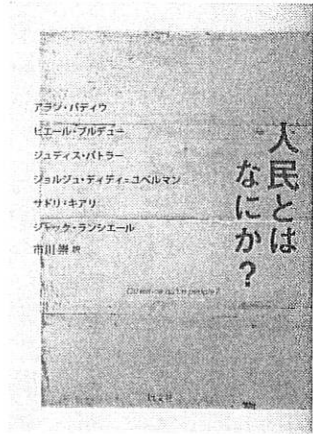 人民とは
なにか？
アラン・バディウ
ピエール・ブルデュー
ジュディス・バトラー
ジョルジュ・ディディ=ユベルマン
サドリ・キアリ
ジャック・ランシエール
市川崇 訳
Qu'est-ce qu'un peuple?